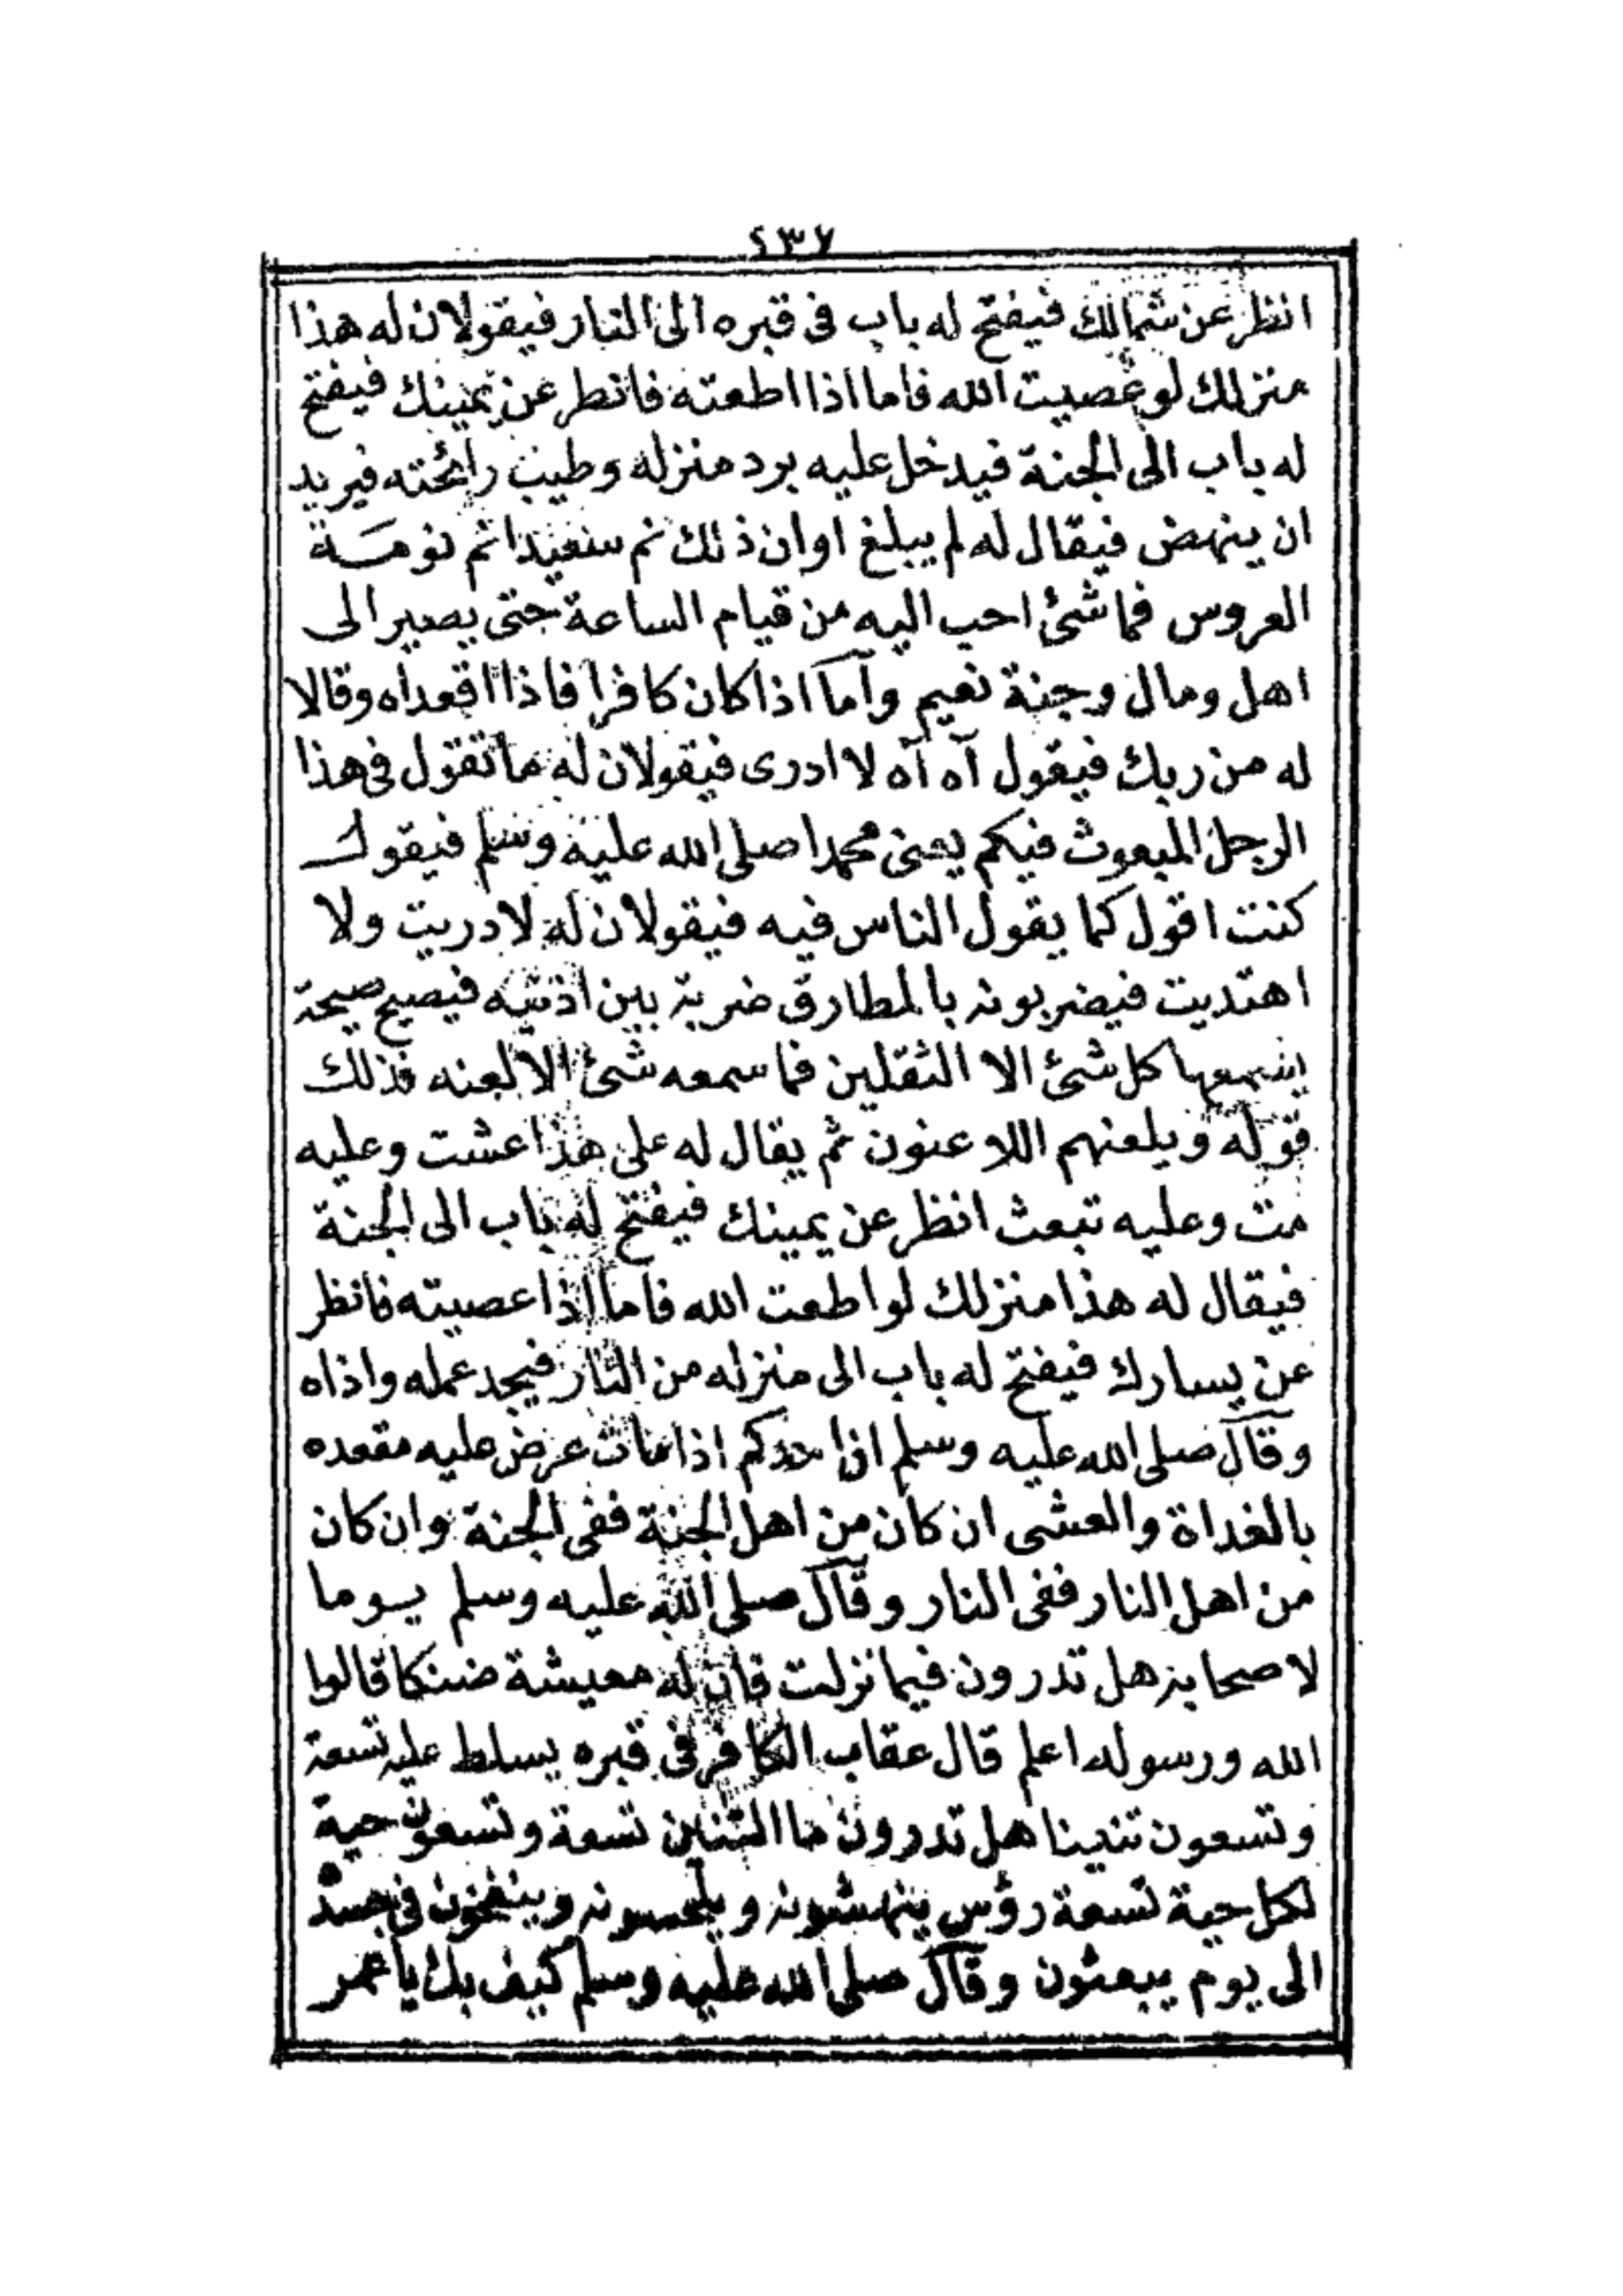 ٤٣٧
انظر عن شمالك فيفتح له باب فى قبره الى النار فيقولان له هذا
منزلك لو عصيت الله فاما اذا اطعته فانظر عن يمينك فيفتح
له باب الى الجنة فيدخل عليه برد منزله وطيب رائحته فيريد
ان ينهض فيقال له لم يبلغ اوان ذلك نم سعيدا نم نومة
العروس فما شئ احب اليه من قيام الساعة حتى يصير الى
اهل ومال وجنة نعيم وأما اذا كان كافرا فاذا اقعداه وقالا
له من ربك فيقول آه آه لا ادرى فيقولان له ما تقول فى هذا
الرجل المبعوث فيكم يعنى محمدا صلى الله عليه وسلم فيقول
كنت اقول كما يقول الناس فيه فيقولان له لا دريت ولا
اهتديت فيضربونه بالمطارق ضربة بين اذنيه فيصيح صيحة
يسمعها كل شئ الا الثقلين فما سمعه شئ الا لعنه فذلك
قوله ويلعنهم اللاعنون ثم يقال له على هذا عشت وعليه
مت وعليه تبعث انظر عن يمينك فيفتح له باب الى الجنة
فيقال له هذا منزلك لو اطعت الله فاما اذا عصيته فانظر
عن يسارك فيفتح له باب الى منزله من النار فيجد عمله واذاه
وقال صلى الله عليه وسلم ان احدكم اذا مات عرض عليه مقعده
بالغداة والعشى ان كان من اهل الجنة ففى الجنة وان كان
من اهل النار ففى النار وقال صلى الله عليه وسلم يوما
لاصحابه هل تدرون فيما نزلت فان له معيشة ضنكا قالوا
الله ورسوله اعلم قال عقاب الكافر فى قبره يسلط عليه تسعة
وتسعون تنينا هل تدرون ما التنين تسعة وتسعون حية
لكل حية تسعة رؤس ينهشونه ويلحسونه وينفخون فى جسده
الى يوم يبعثون وقال صلى الله عليه وسلم كيف بك يا عمر